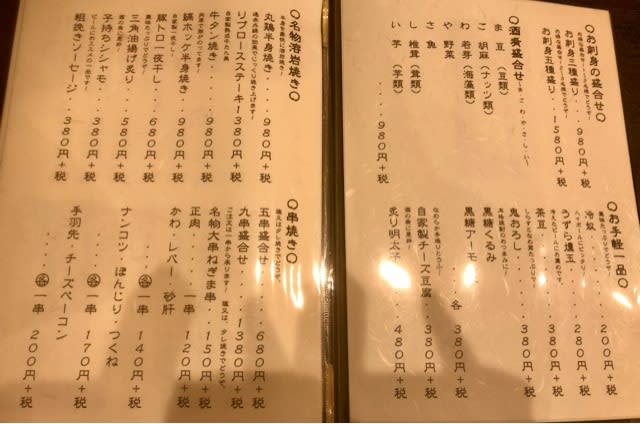 ○お刺身の盛合せ○
お刺身三種盛り...980円+税
お刺身五種盛り...1580円+税
○酒肴盛合せ○
ま 豆(豆類)
ご 胡麻(ナッツ類)
わ 若芽(海藻類)
や 野菜
さ 魚
し 椎茸(茸類)
い 芋(芋類)
...980円+税
○お手軽一品○
冷奴...200円+税
うずら燻玉...280円+税
茶豆...380円+税
鬼おろし...380円+税
黒糖くるみ
黒糖アーモ...各380円+税
自家製チーズ豆腐...380円+税
酒の肴に最幸!
炙り明太子...480円+税
○名物溶岩焼き○
丸鶏半身焼き...980円+税
リブロースステーキ1380円+税
牛タン焼き...980円+税
縞ホッケ半身焼き...980円+税
自家製一夜干し!
豚トロ一夜干し...680円+税
三角油揚げ炙り...580円+税
酒の肴に最幸!
子持ちシシャモ...380円+税
ビールにおススメの一品です!
粗挽きソーセージ...380円+税
○串焼き○
五串盛合せ...680円+税
九串盛合せ...1380円+税
名物大串ねぎま串...150円+税
正肉...一串120円+税
かわ・レバー・砂肝
...各一串140円+税
ナンコツ・ぼんじり・つくね
...各一串170円+税
手羽先・チーズベーコン
...各一串200円+税